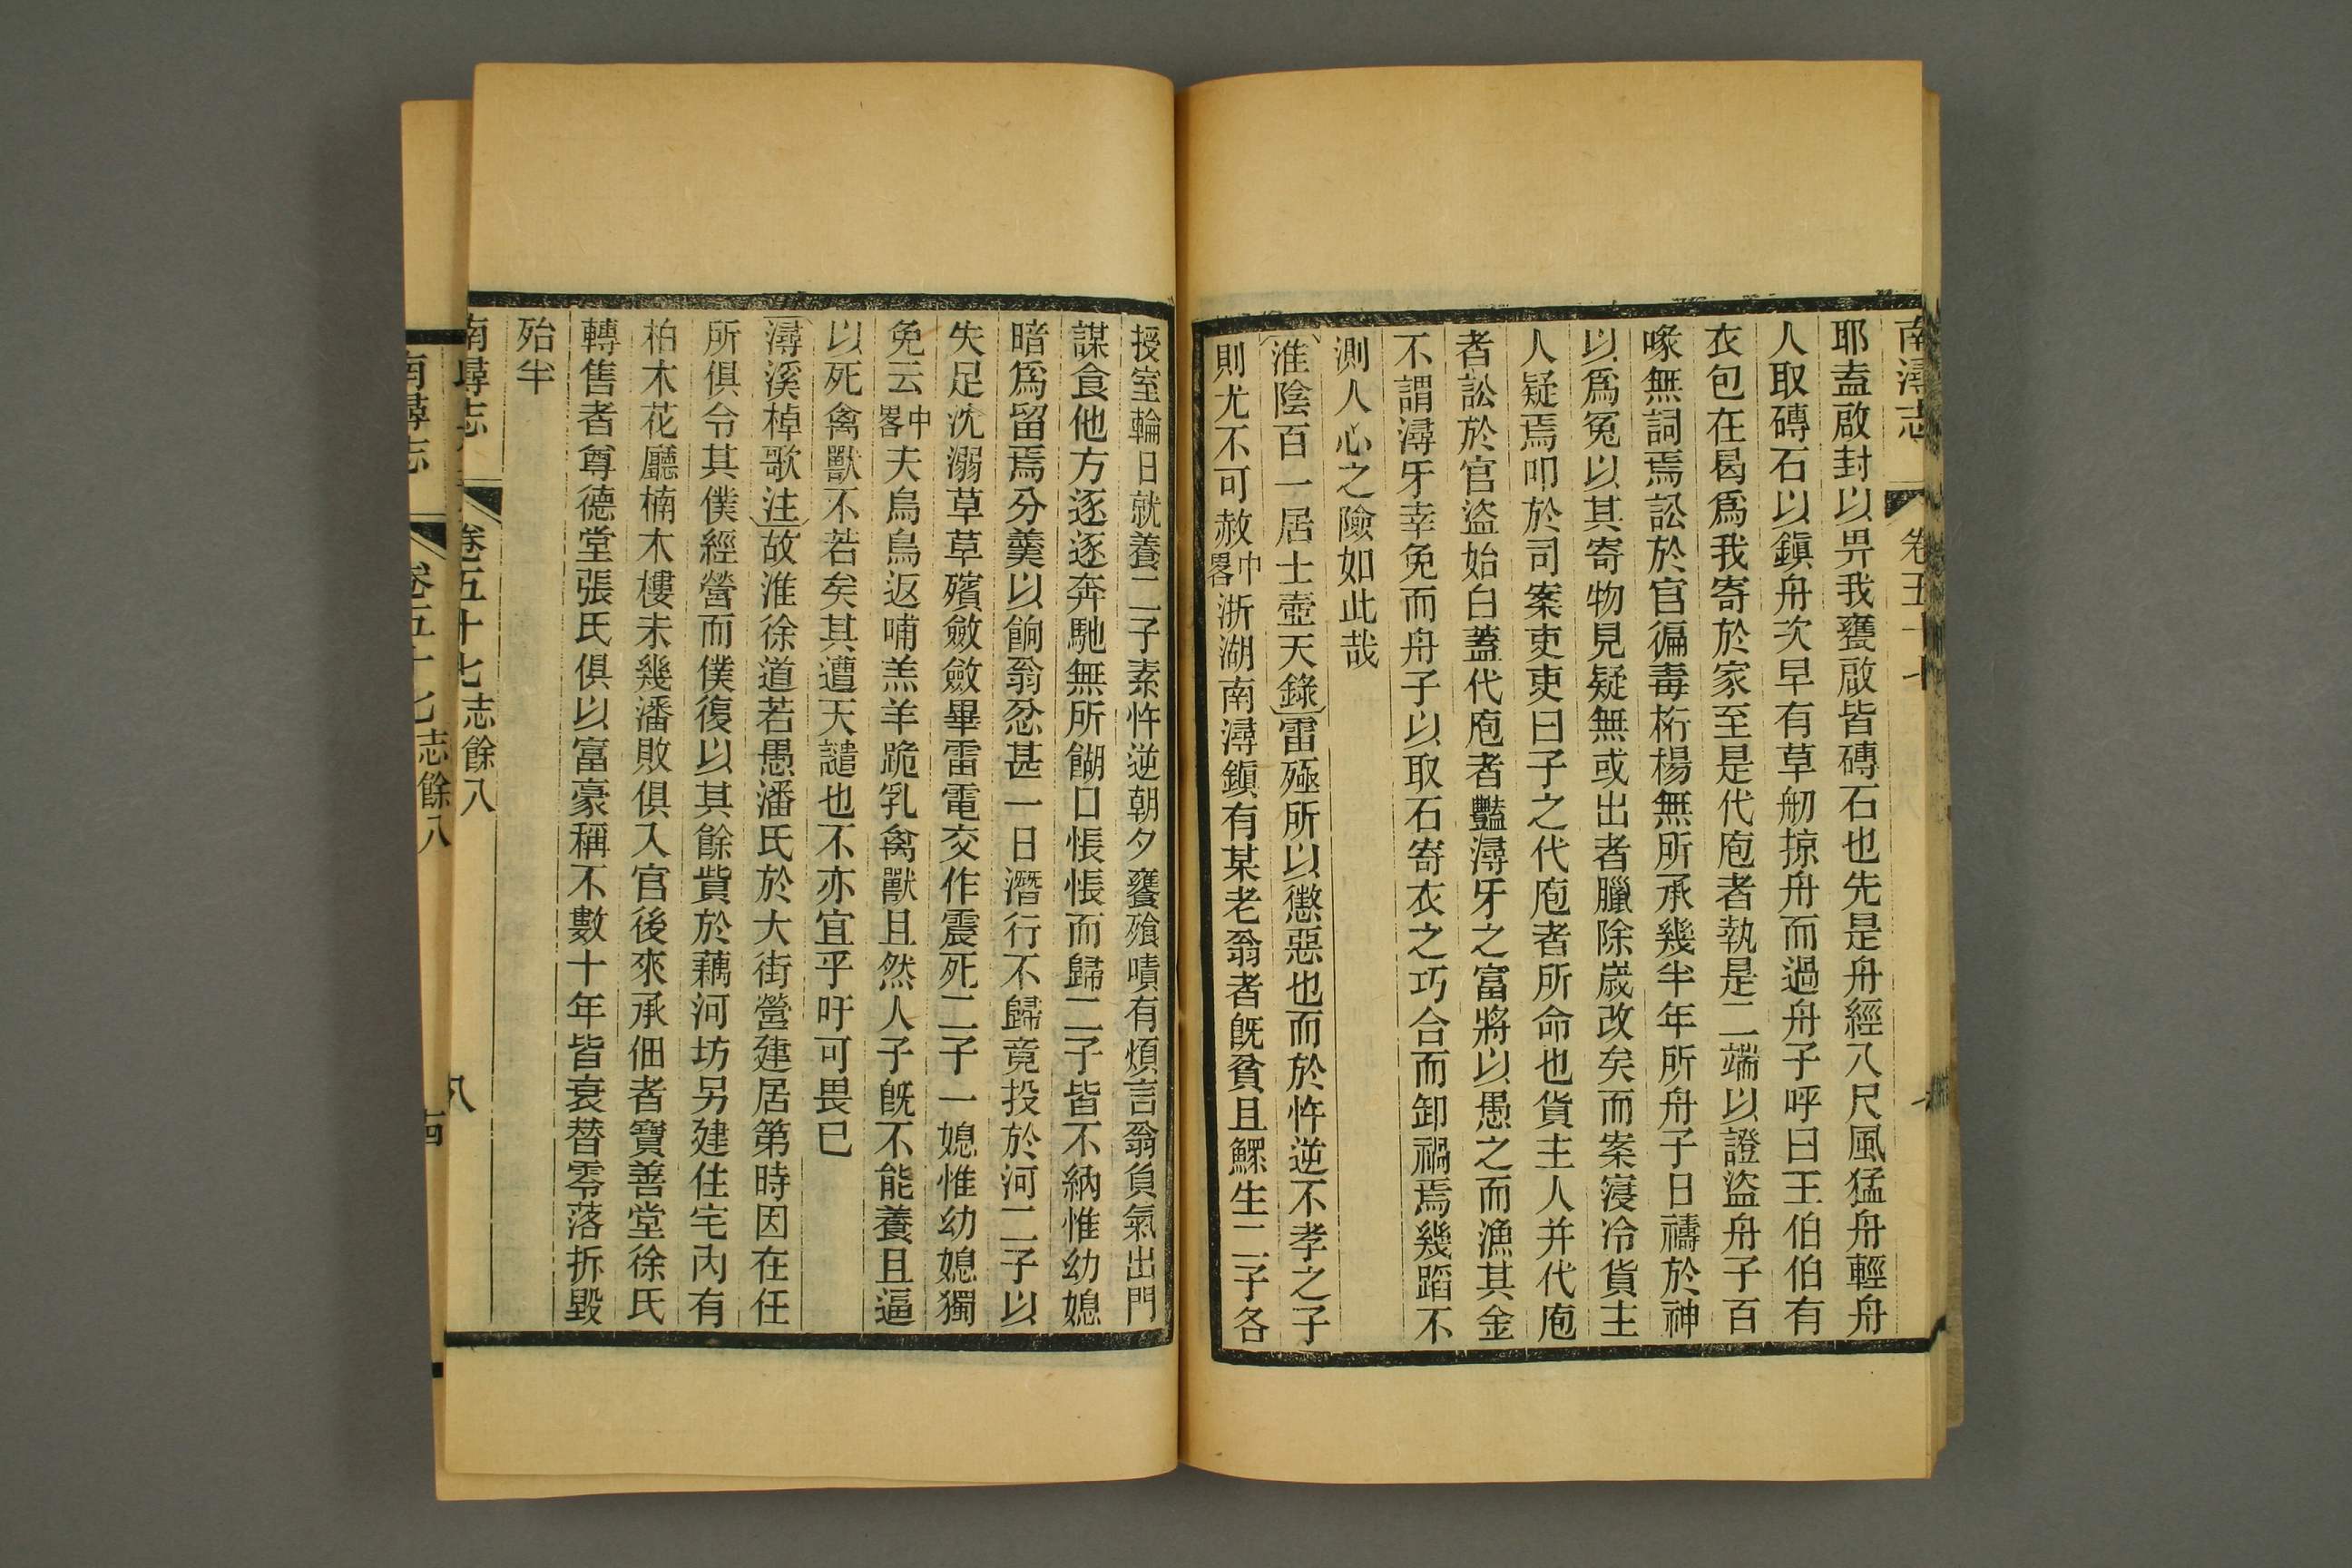 南潯志
卷五十七
耶盍啟封以畀我甕啟皆磚石也先是舟經八尺風猛舟輕舟
人取磚石以鎭舟次早有草舠掠舟而過舟子呼曰王伯伯有
衣包在曷爲我寄於家至是代庖者執是二端以證盜舟子百
喙無詞焉訟於官徧毒桁楊無所承幾半年所舟子日禱於神
以爲冤以其寄物見疑無或出者臘除歲改矣而案寖冷貨主
人疑焉叩於司案吏吏曰子之代庖者所命也貨主人并代庖
者訟於官盜始白蓋代庖者豔潯牙之富將以愚之而漁其金
不謂潯牙幸免而舟子以取石寄衣之巧合而卸禍焉幾蹈不
測人心之險如此哉
淮陰百一居士壺天錄雷殛所以懲惡也而於忤逆不孝之子
則尤不可赦中畧浙湖南潯鎭有某老翁者旣貧且鰥生二子各
授室輪日就養二子素忤逆朝夕饔飱嘖有煩言翁負氣出門
謀食他方逐逐奔馳無所餬口悵悵而歸二子皆不納惟幼媳
暗爲留焉分羹以餉翁忿甚一日潛行不歸竟投於河二子以
失足沈溺草草殯斂斂畢雷電交作震死二子一媳惟幼媳獨
免云中畧夫烏鳥返哺羔羊跪乳禽獸且然人子旣不能養且逼
以死禽獸不若矣其遭天譴也不亦宜乎吁可畏已
潯溪棹歌注故淮徐道若愚潘氏於大街營建居第時因在任
所俱令其僕經營而僕復以其餘貲於藕河坊另建住宅內有
柏木花廳楠木樓未幾潘敗俱入官後來承佃者寶善堂徐氏
轉售者尊德堂張氏俱以富豪稱不數十年皆衰替零落拆毀
殆半
南潯志
卷五十七志餘八
八
南潯志
卷五十七志餘八